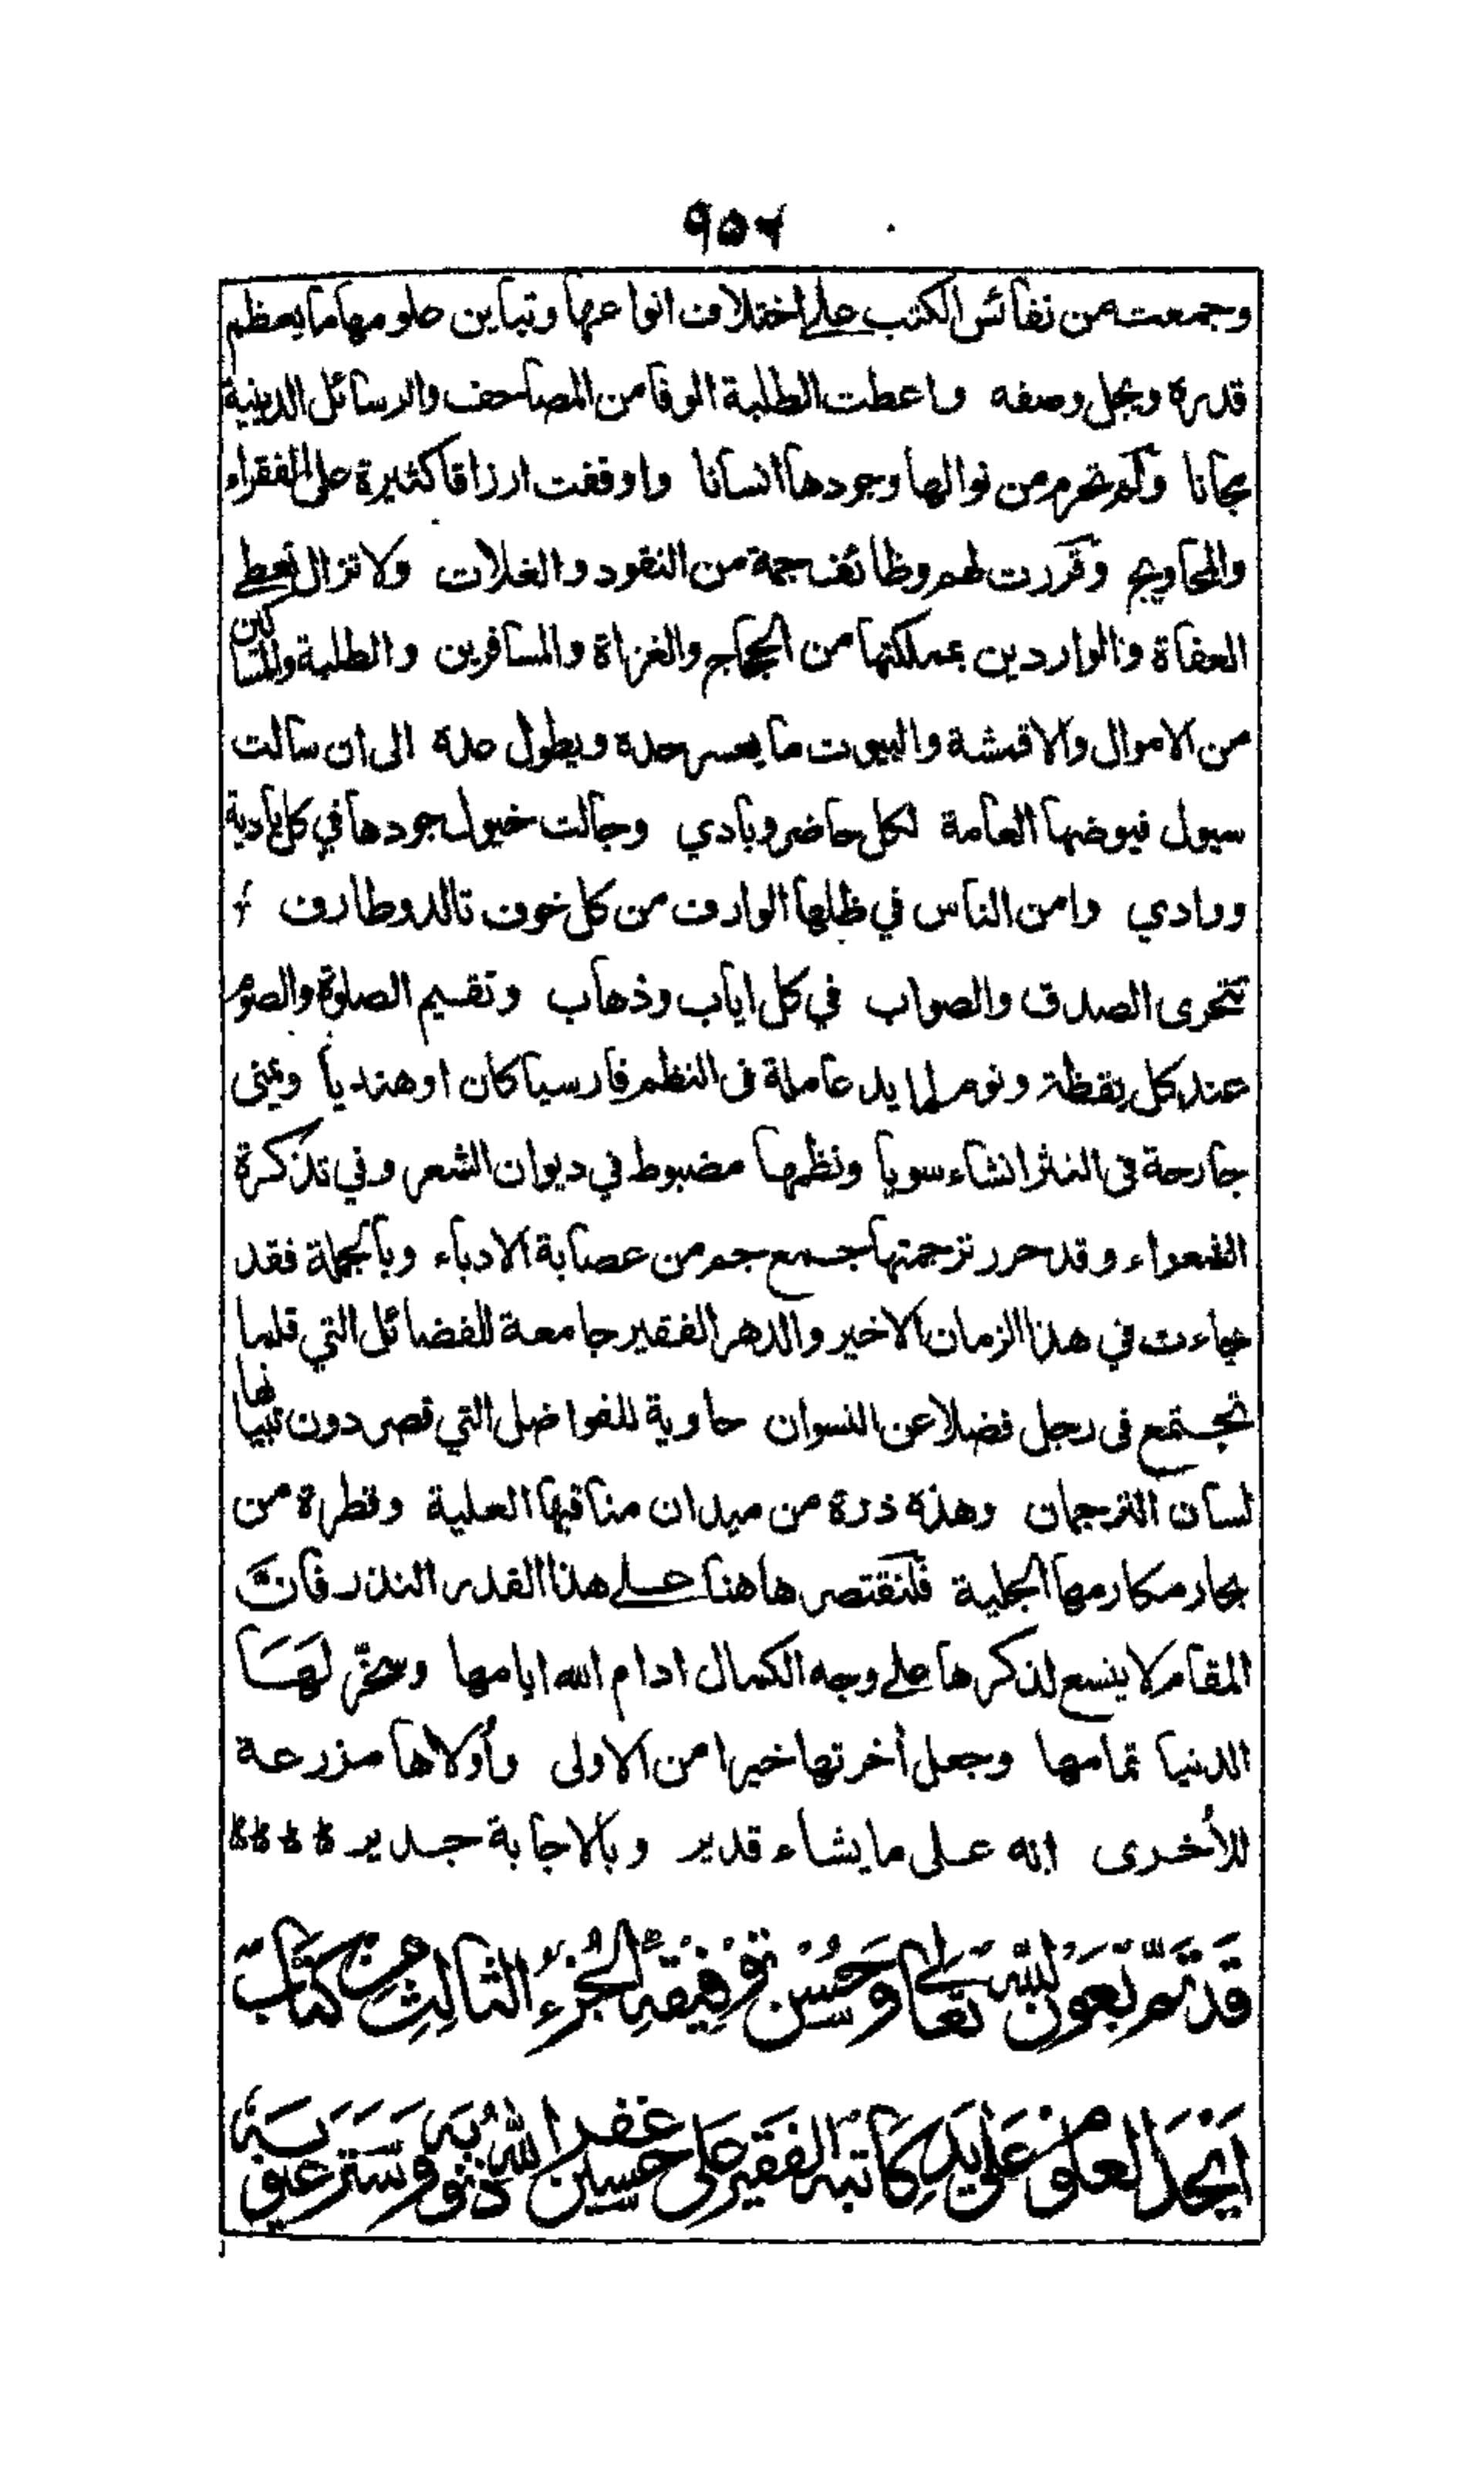 ٩٥٦
وجمعت من نفائس الكتب على اختلاف انواعها وتباين علومها ما يعظم
قدره ويجل وصفه واعطت الطلبة الوفا من المصاحف والرسائل الدينية
مجانا ولم تحرم من نوالها وجودها انسانا واوقفت ارزاقا كثيرة على الفقراء
والمحاويج وقررت لهم وظائف جمة من النقود والغلات ولا تزال تعطي
العفاة والواردين بمملكتها من الحجاج والغزاة والمسافرين والطلبة والمساكين
من الاموال والاقمشة والبيوت ما يعسر حده ويطول عده الى ان سالت
سيول فيوضها العامة لكل حاضر وبادي وجالت خيول جودها في كل بادية
ووادي وامن الناس في ظلها الوارف من كل خوف تالد وطارف
تتحرى الصدق والصواب في كل اياب وذهاب وتقسيم الصلوة والصوم
عند كل يقظة ونوم لها يد عاملة في النظم فارسيا كان او هنديا ويمنى
جارحة في النثر انشاء سويا ونظمها مضبوط في ديوان الشعر وفي تذكرة
الشعراء وقد حرر ترجمتها جمع جم من عصابة الادباء وبالجملة فقد
جاءت في هذا الزمان الاخير والدهر الفقير جامعة للفضائل التي قلما
تجتمع في رجل فضلا عن النسوان حاوية للفواضل التي قصر دون تبيانها
لسان الترجمان وهذه ذرة من ميدان مناقبها العلية وقطرة من
بحار مكارمها الجلية فلنقتصر هاهنا على هذا القدر النذر فان
المقام لا يتسع لذكرها على وجه الكمال ادام الله ايامها وسخّر لها
الدنيا تمامها وجعل أخرتها خيرا من الاولى وأولاها مزرعة
للأخرى انه على ما يشاء قدير وبالاجابة جدير
قَد تَمَّ بِعَونِ اللّٰه تَعَالى وَحُسْنِ تَوفِيقِهِ الجُزءُ الثَّالِثُ مِن كِتَابِ
اَبْجَدَ العلُوم عَلى يَدِ كَاتبه الفَقير على حسين غفر الله ذنوبه وسَتَرَ عيوبه